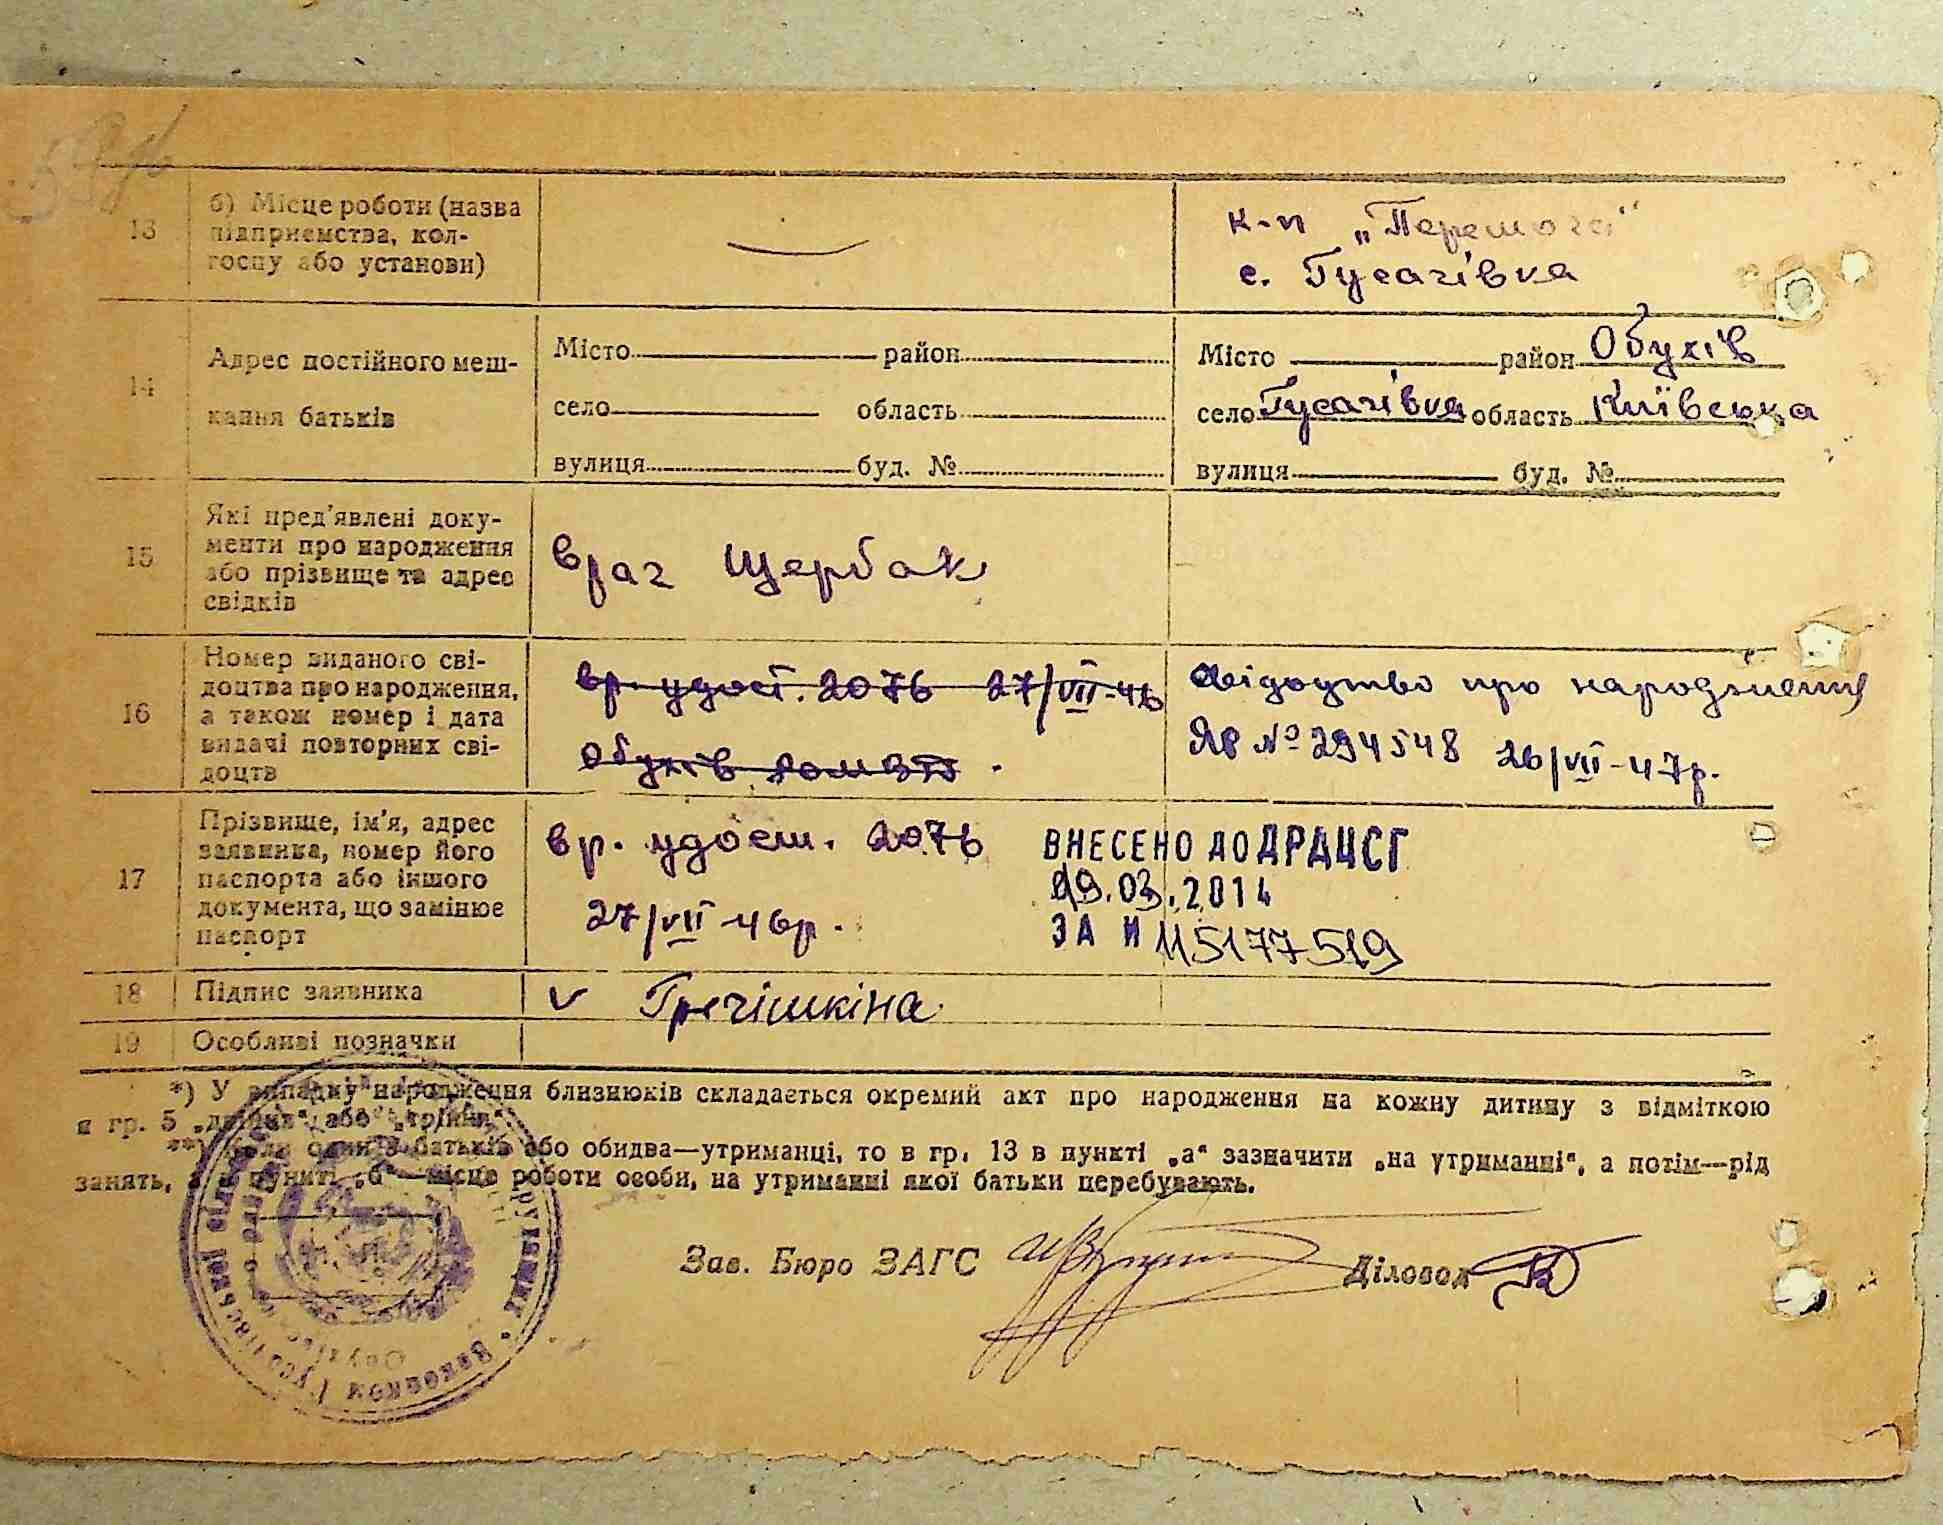 13
б) Місце роботи (назва
підприємства, кол-
госпу або установи)
к-п „Перемога"
с. Гусачівка
14
Адрес постійного меш-
кання батьків
Місто район
село область
вулиця буд. №
Місто район Обухів
село Гусачівка область Київська
вулиця буд. №
15
Які пред'явлені доку-
менти про народження
або прізвище та адрес
свідків
врач Щербак
16
Номер виданого сві-
доцтва про народження,
а також номер і дата
видачі повторних сві-
доцтв
вр. удост. 2076 27/VII-46
Обухів
свідоцтво про народження
ЯР № 294548 26/VII-47р.
17
Прізвище, ім'я, адрес
заявника, номер його
паспорта або іншого
документа, що замінює
паспорт
вр. удост. 2076
27/VII-46р.
ВНЕСЕНО ДО ДРАЦСГ
19.03.2014
ЗА N 115177519
18
Підпис заявника
v Гречішкіна
19
Особливі позначки
*) У випадку народження близнюків складається окремий акт про народження на кожну дитину з відміткою
в гр. 5 „двійня" або „трійня".
**) Коли один з батьків або обидва—утриманці, то в гр. 13 в пункті „а" зазначити „на утриманні", а потім—рід
занять, а в пункті „б"—місце роботи особи, на утриманні якої батьки перебувають.
Зав. Бюро ЗАГС
Діловод